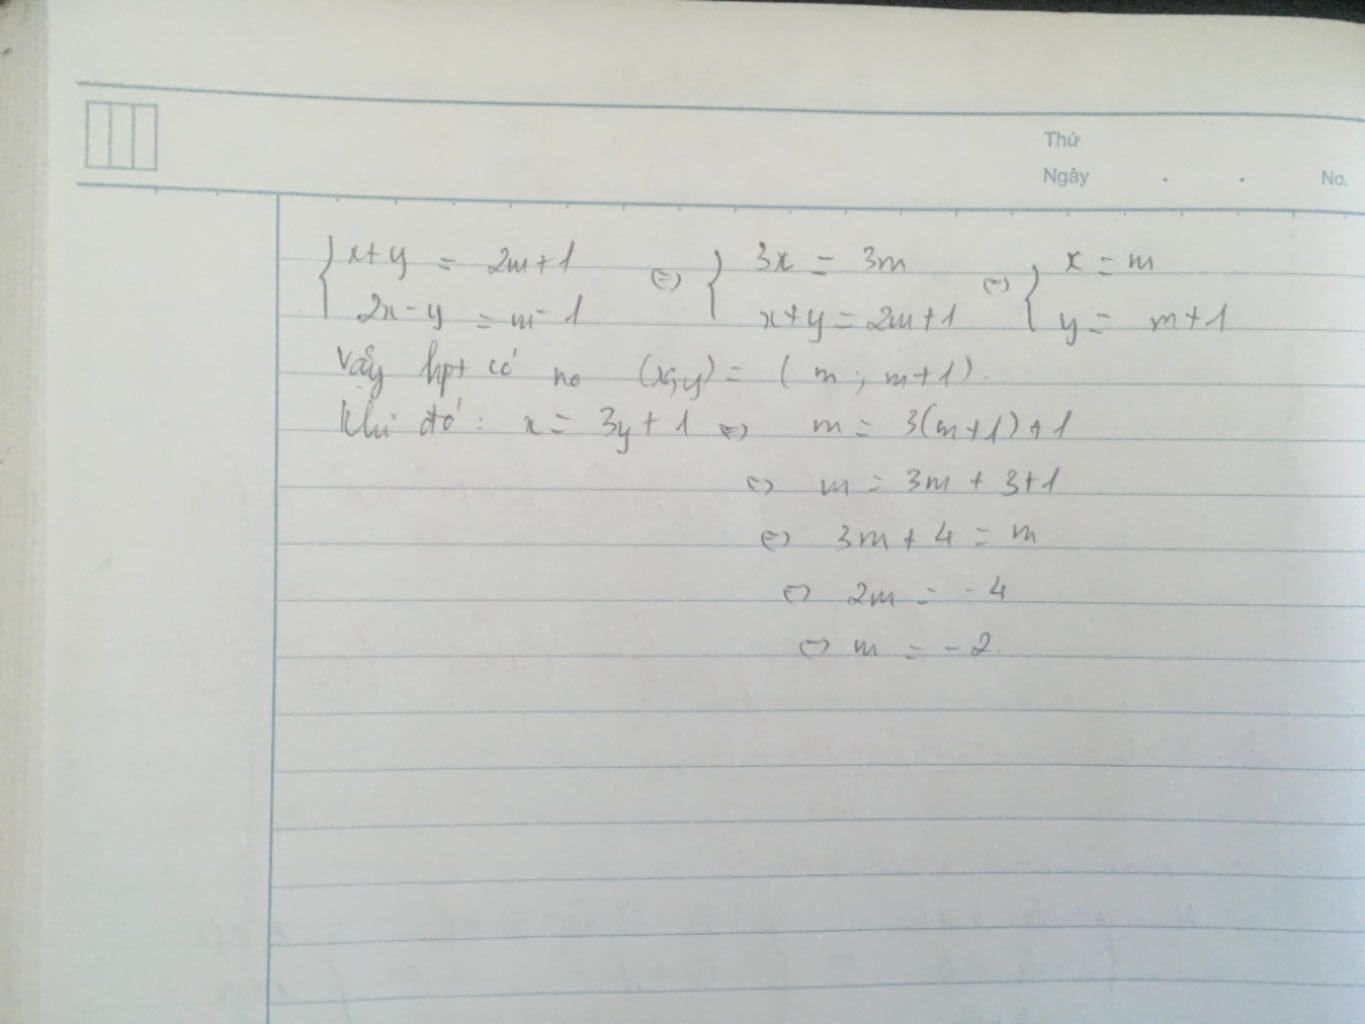 Thứ
Ngày . . No.
{ x+y = 2m+1 <=> { 3x = 3m <=> { x = m
2x-y = m-1 x+y = 2m+1 y = m+1
Vậy hpt có no (x;y) = ( m ; m+1).
Khi đó : x = 3y + 1 <=> m = 3(m+1) + 1
<=> m = 3m + 3+1
<=> 3m + 4 = m
<=> 2m = -4
<=> m = -2.